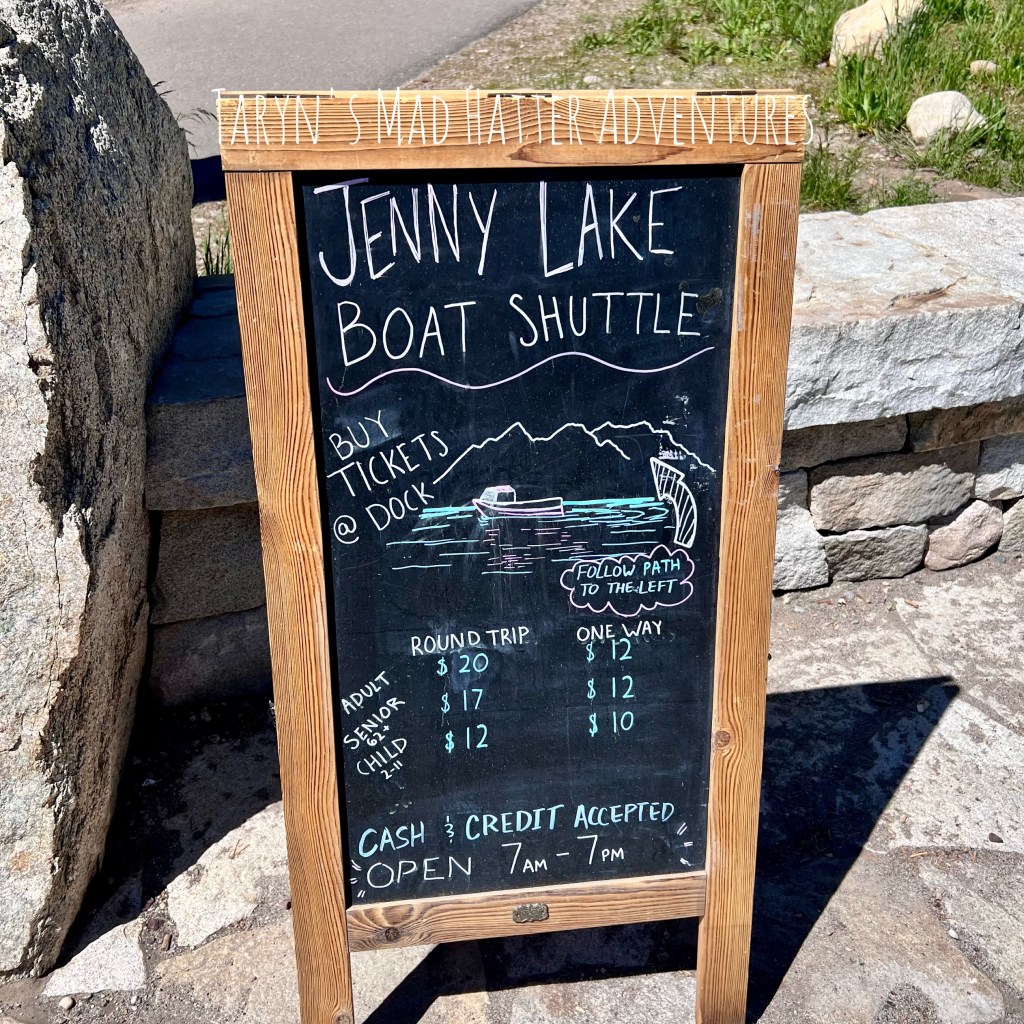 Taryn's Mad Hatter Adventures
JENNY LAKE
BOAT SHUTTLE
BUY
TICKETS
@ DOCK
FOLLOW PATH
TO THE LEFT
ROUND TRIP ONE WAY
$20 $12
$17 $12
$12 $10
ADULT
SENIOR
62+
CHILD
2-11
CASH & CREDIT ACCEPTED
OPEN 7AM - 7PM